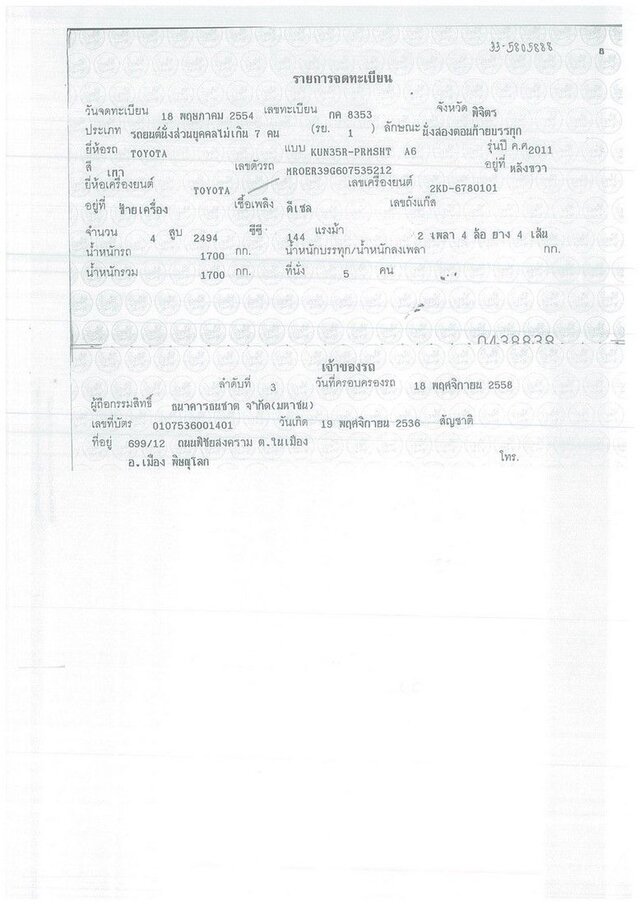 33-5805888
8
รายการจดทะเบียน
วันจดทะเบียน 18 พฤษภาคม 2554 เลขทะเบียน กค 8353 จังหวัด พิจิตร
ประเภท รถยนต์นั่งส่วนบุคคลไม่เกิน 7 คน (รย. 1 ) ลักษณะ นั่งสองตอนท้ายบรรทุก
ยี่ห้อรถ TOYOTA แบบ KUN35R-PRMSHT A6 รุ่นปี ค.ศ2011
สี เทา เลขตัวรถ MROER39G607535212 อยู่ที่ หลังขวา
ยี่ห้อเครื่องยนต์ TOYOTA เลขเครื่องยนต์ 2KD-6780101
อยู่ที่ ซ้ายเครื่อง เชื้อเพลิง ดีเซล เลขถังแก๊ส
จำนวน 4 สูบ 2494 ซีซี 144 แรงม้า 2 เพลา 4 ล้อ ยาง 4 เส้น
น้ำหนักรถ 1700 กก. น้ำหนักบรรทุก/น้ำหนักลงเพลา กก.
น้ำหนักรวม 1700 กก. ที่นั่ง 5 คน
0438838
เจ้าของรถ
ลำดับที่ 3 วันที่ครอบครองรถ 18 พฤศจิกายน 2558
ผู้ถือกรรมสิทธิ์ ธนาคารธนชาต จำกัด(มหาชน)
เลขที่บัตร 0107536001401 วันเกิด 19 พฤศจิกายน 2536 สัญชาติ
ที่อยู่ 699/12 ถนนพิชัยสงคราม ต.ในเมือง
อ.เมือง พิษณุโลก โทร.